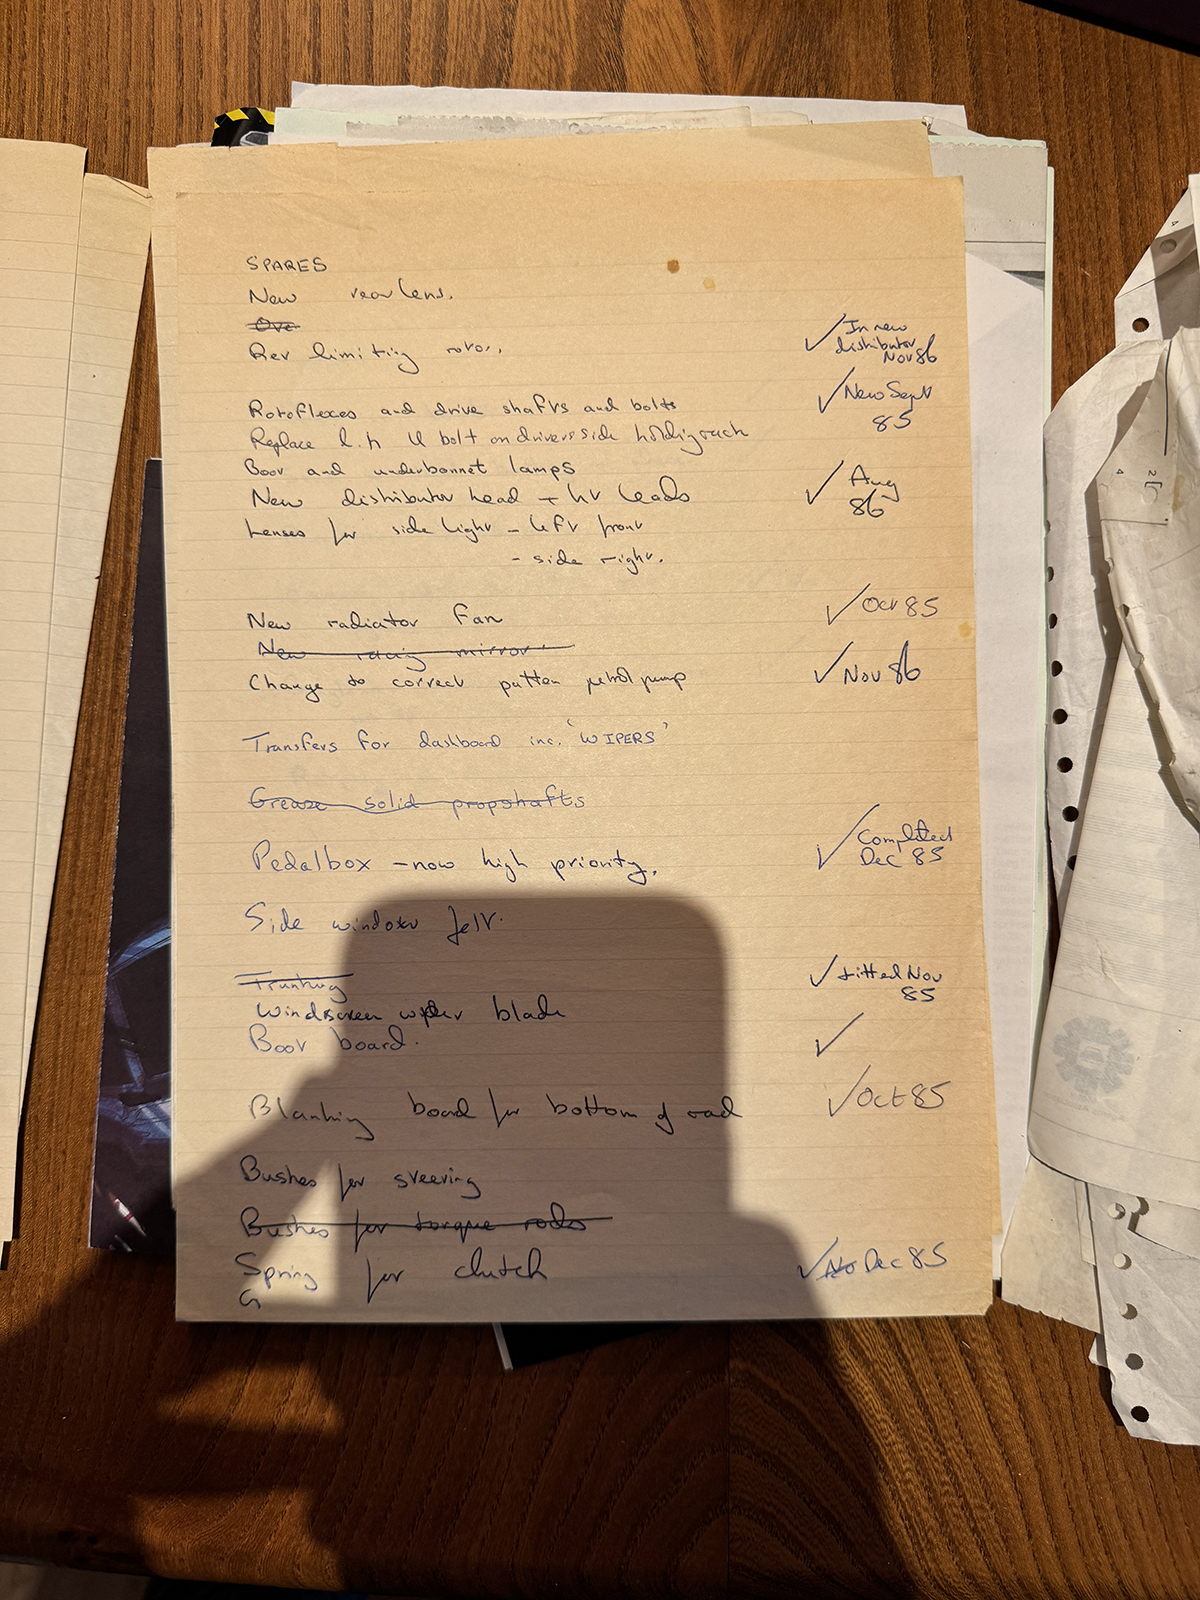 SPARES
New rear lens.
Ove
Rev limiting rotor. ✓ In new
distributor
Nov 86
Rotoflexes and drive shafts and bolts ✓ New Sept
85
Replace l.h U bolt on drivers side holding rack
Boot and underbonnet lamps
New distributor head + ht leads ✓ Aug
86
Lenses for side light - left front
- side right.
New radiator fan ✓ Oct 85
New racing mirror
Change to correct pattern petrol pump ✓ Nov 86
Transfers for dashboard inc. 'WIPERS'
Grease solid propshafts
Pedalbox - now high priority. ✓ Completed
Dec 85
Side window felt.
Trunking ✓ fitted Nov
85
Windscreen wiper blade
Boot board. ✓
Blanking board for bottom of rad ✓ Oct 85
Bushes for steering
Bushes for torque rods
Spring for clutch ✓ No Dec 85
G